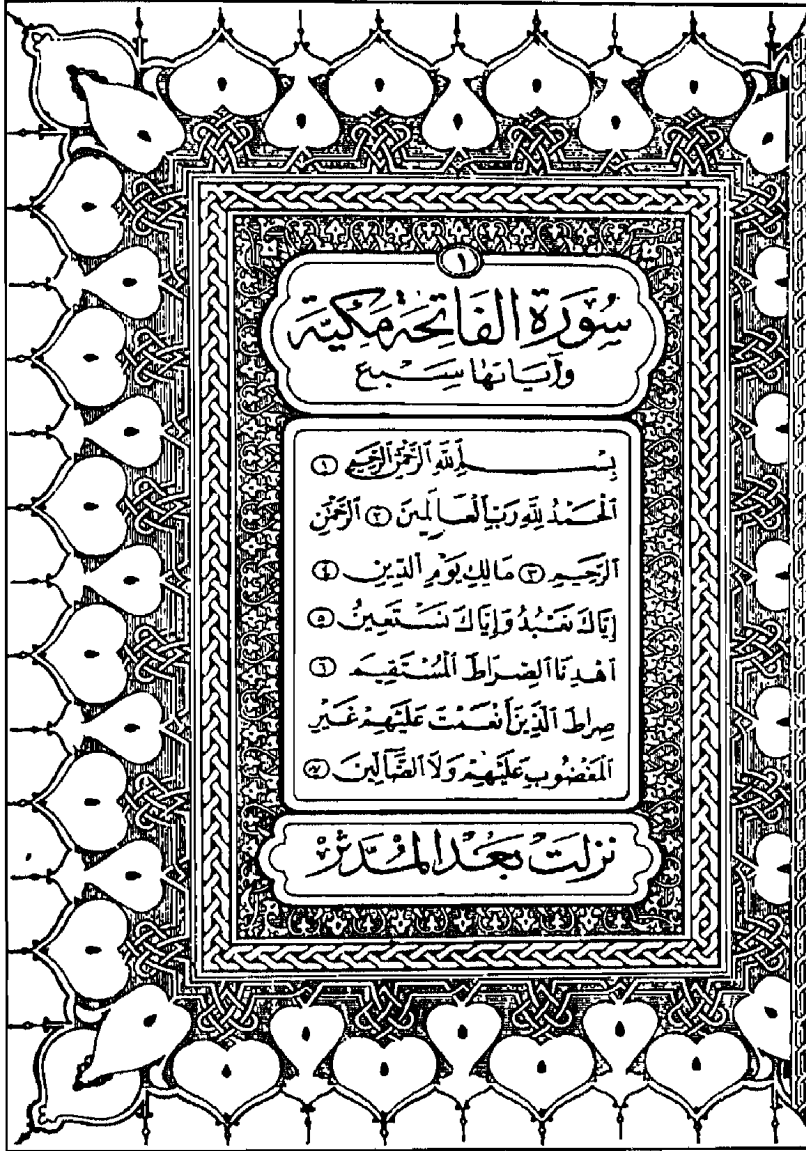 ١
سُورَةُ الفَاتِحَةِ مَكِّيَّة
وَآيَاتُهَا سَبْع
بِسْمِ ٱللَّهِ ٱلرَّحْمَٰنِ ٱلرَّحِيمِ ١
ٱلْحَمْدُ لِلَّهِ رَبِّ ٱلْعَالَمِينَ ٢ ٱلرَّحْمَٰنِ
ٱلرَّحِيمِ ٣ مَالِكِ يَوْمِ ٱلدِّينِ ٤
إِيَّاكَ نَعْبُدُ وَإِيَّاكَ نَسْتَعِينُ ٥
ٱهْدِنَا ٱلصِّرَاطَ ٱلْمُسْتَقِيمَ ٦
صِرَاطَ ٱلَّذِينَ أَنْعَمْتَ عَلَيْهِمْ غَيْرِ
ٱلْمَغْضُوبِ عَلَيْهِمْ وَلَا ٱلضَّآلِّينَ ٧
نَزَلَتْ بَعْدَ المُدَّثِّر